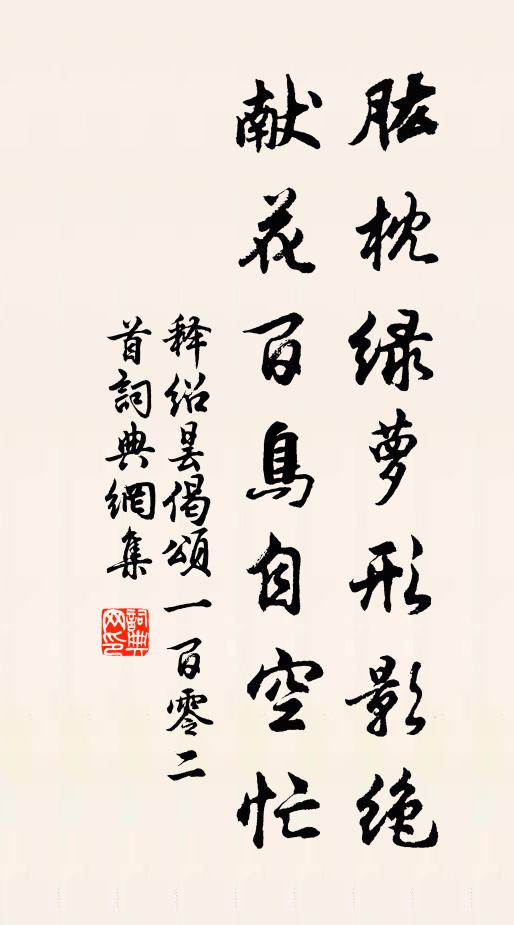 肱枕绿萝形影绝
献花百鸟自空忙
释绍昙偈頌一百零二
首詞典網集
詞典网印